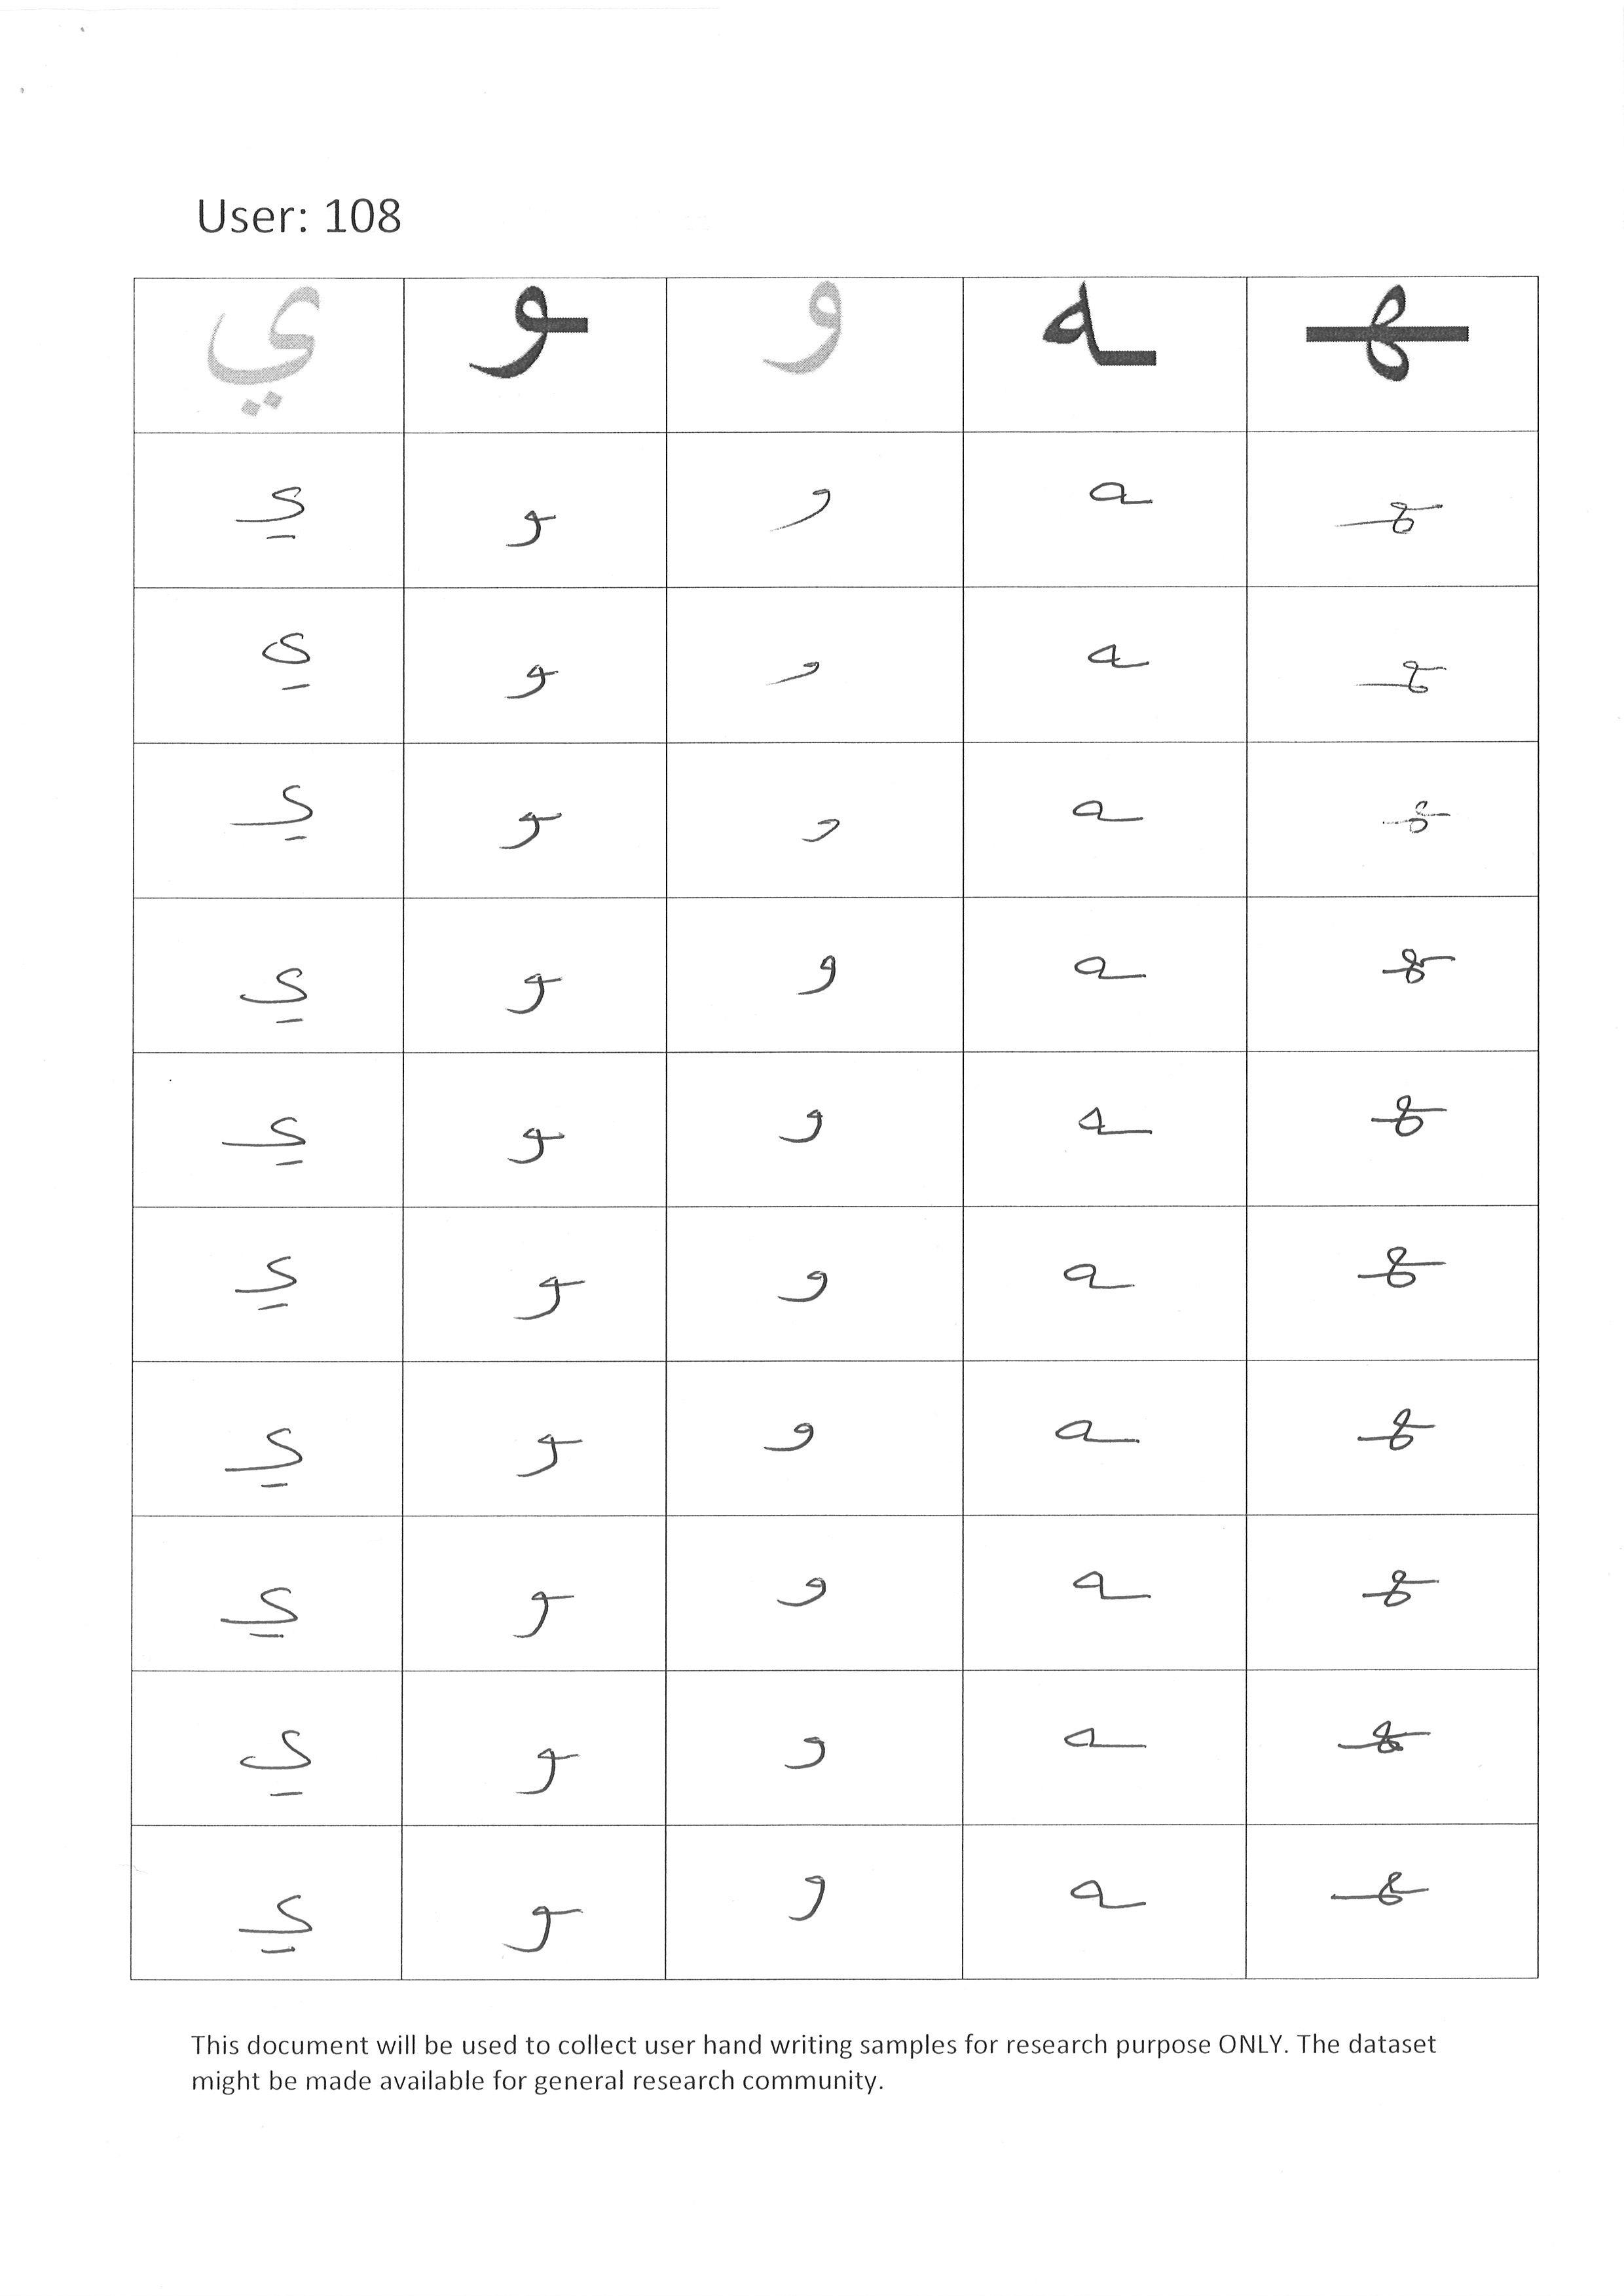 User: 108
ي ـو و ـه ـهـ
ي ـو و ـه ـهـ
ي ـو و ـه ـهـ
ي ـو و ـه ـهـ
ي ـو و ـه ـهـ
ي ـو و ـه ـهـ
ي ـو و ـه ـهـ
ي ـو و ـه ـهـ
ي ـو و ـه ـهـ
ي ـو و ـه ـهـ
ي ـو و ـه ـهـ
This document will be used to collect user hand writing samples for research purpose ONLY. The dataset
might be made available for general research community.